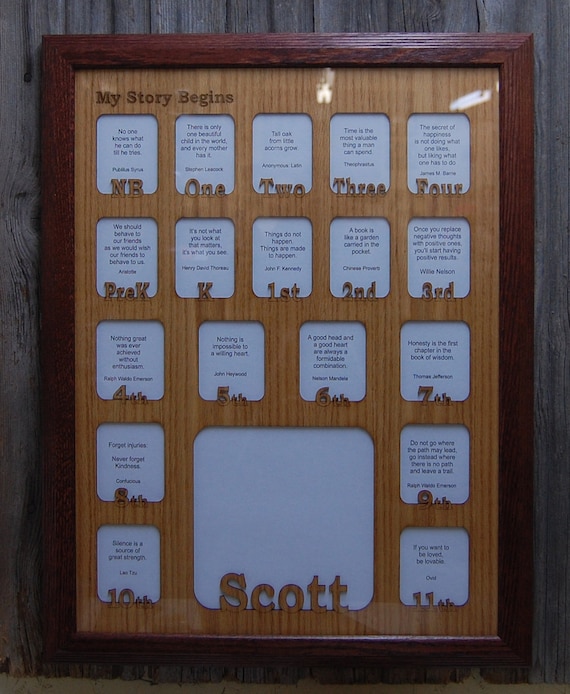 My Story Begins
No one
knows what
he can do
till he tries.
Publilius Syrus
NB
There is only
one beautiful
child in the world,
and every mother
has it.
Stephen Leacock
One
Tall oak
from little
acorns grow.
Anonymous: Latin
Two
Time is the
most valuable
thing a man
can spend.
Theophrastus
Three
The secret of
happiness
is not doing what
one likes,
but liking what
one has to do
James M. Barrie
Four
We should
behave to
our friends
as we would wish
our friends to
behave to us.
Aristotle
PreK
It's not what
you look at
that matters,
it's what you see.
Henry David Thoreau
K
Things do not
happen.
Things are made
to happen.
John F. Kennedy
1st
A book is
like a garden
carried in the
pocket.
Chinese Proverb
2nd
Once you replace
negative thoughts
with positive ones,
you'll start having
positive results.
Willie Nelson
3rd
Nothing great
was ever
achieved
without
enthusiasm.
Ralph Waldo Emerson
4th
Nothing is
impossible to
a willing heart.
John Heywood
5th
A good head and
a good heart
are always a
formidable
combination.
Nelson Mandela
6th
Honesty is the first
chapter in the
book of wisdom.
Thomas Jefferson
7th
Forget injuries.
Never forget
Kindness.
Confucious
8th
Do not go where
the path may lead,
go instead where
there is no path
and leave a trail.
Ralph Waldo Emerson
9th
Silence is a
source of
great strength.
Lao Tzu
10th
Scott
If you want to
be loved,
be lovable.
Ovid
11th